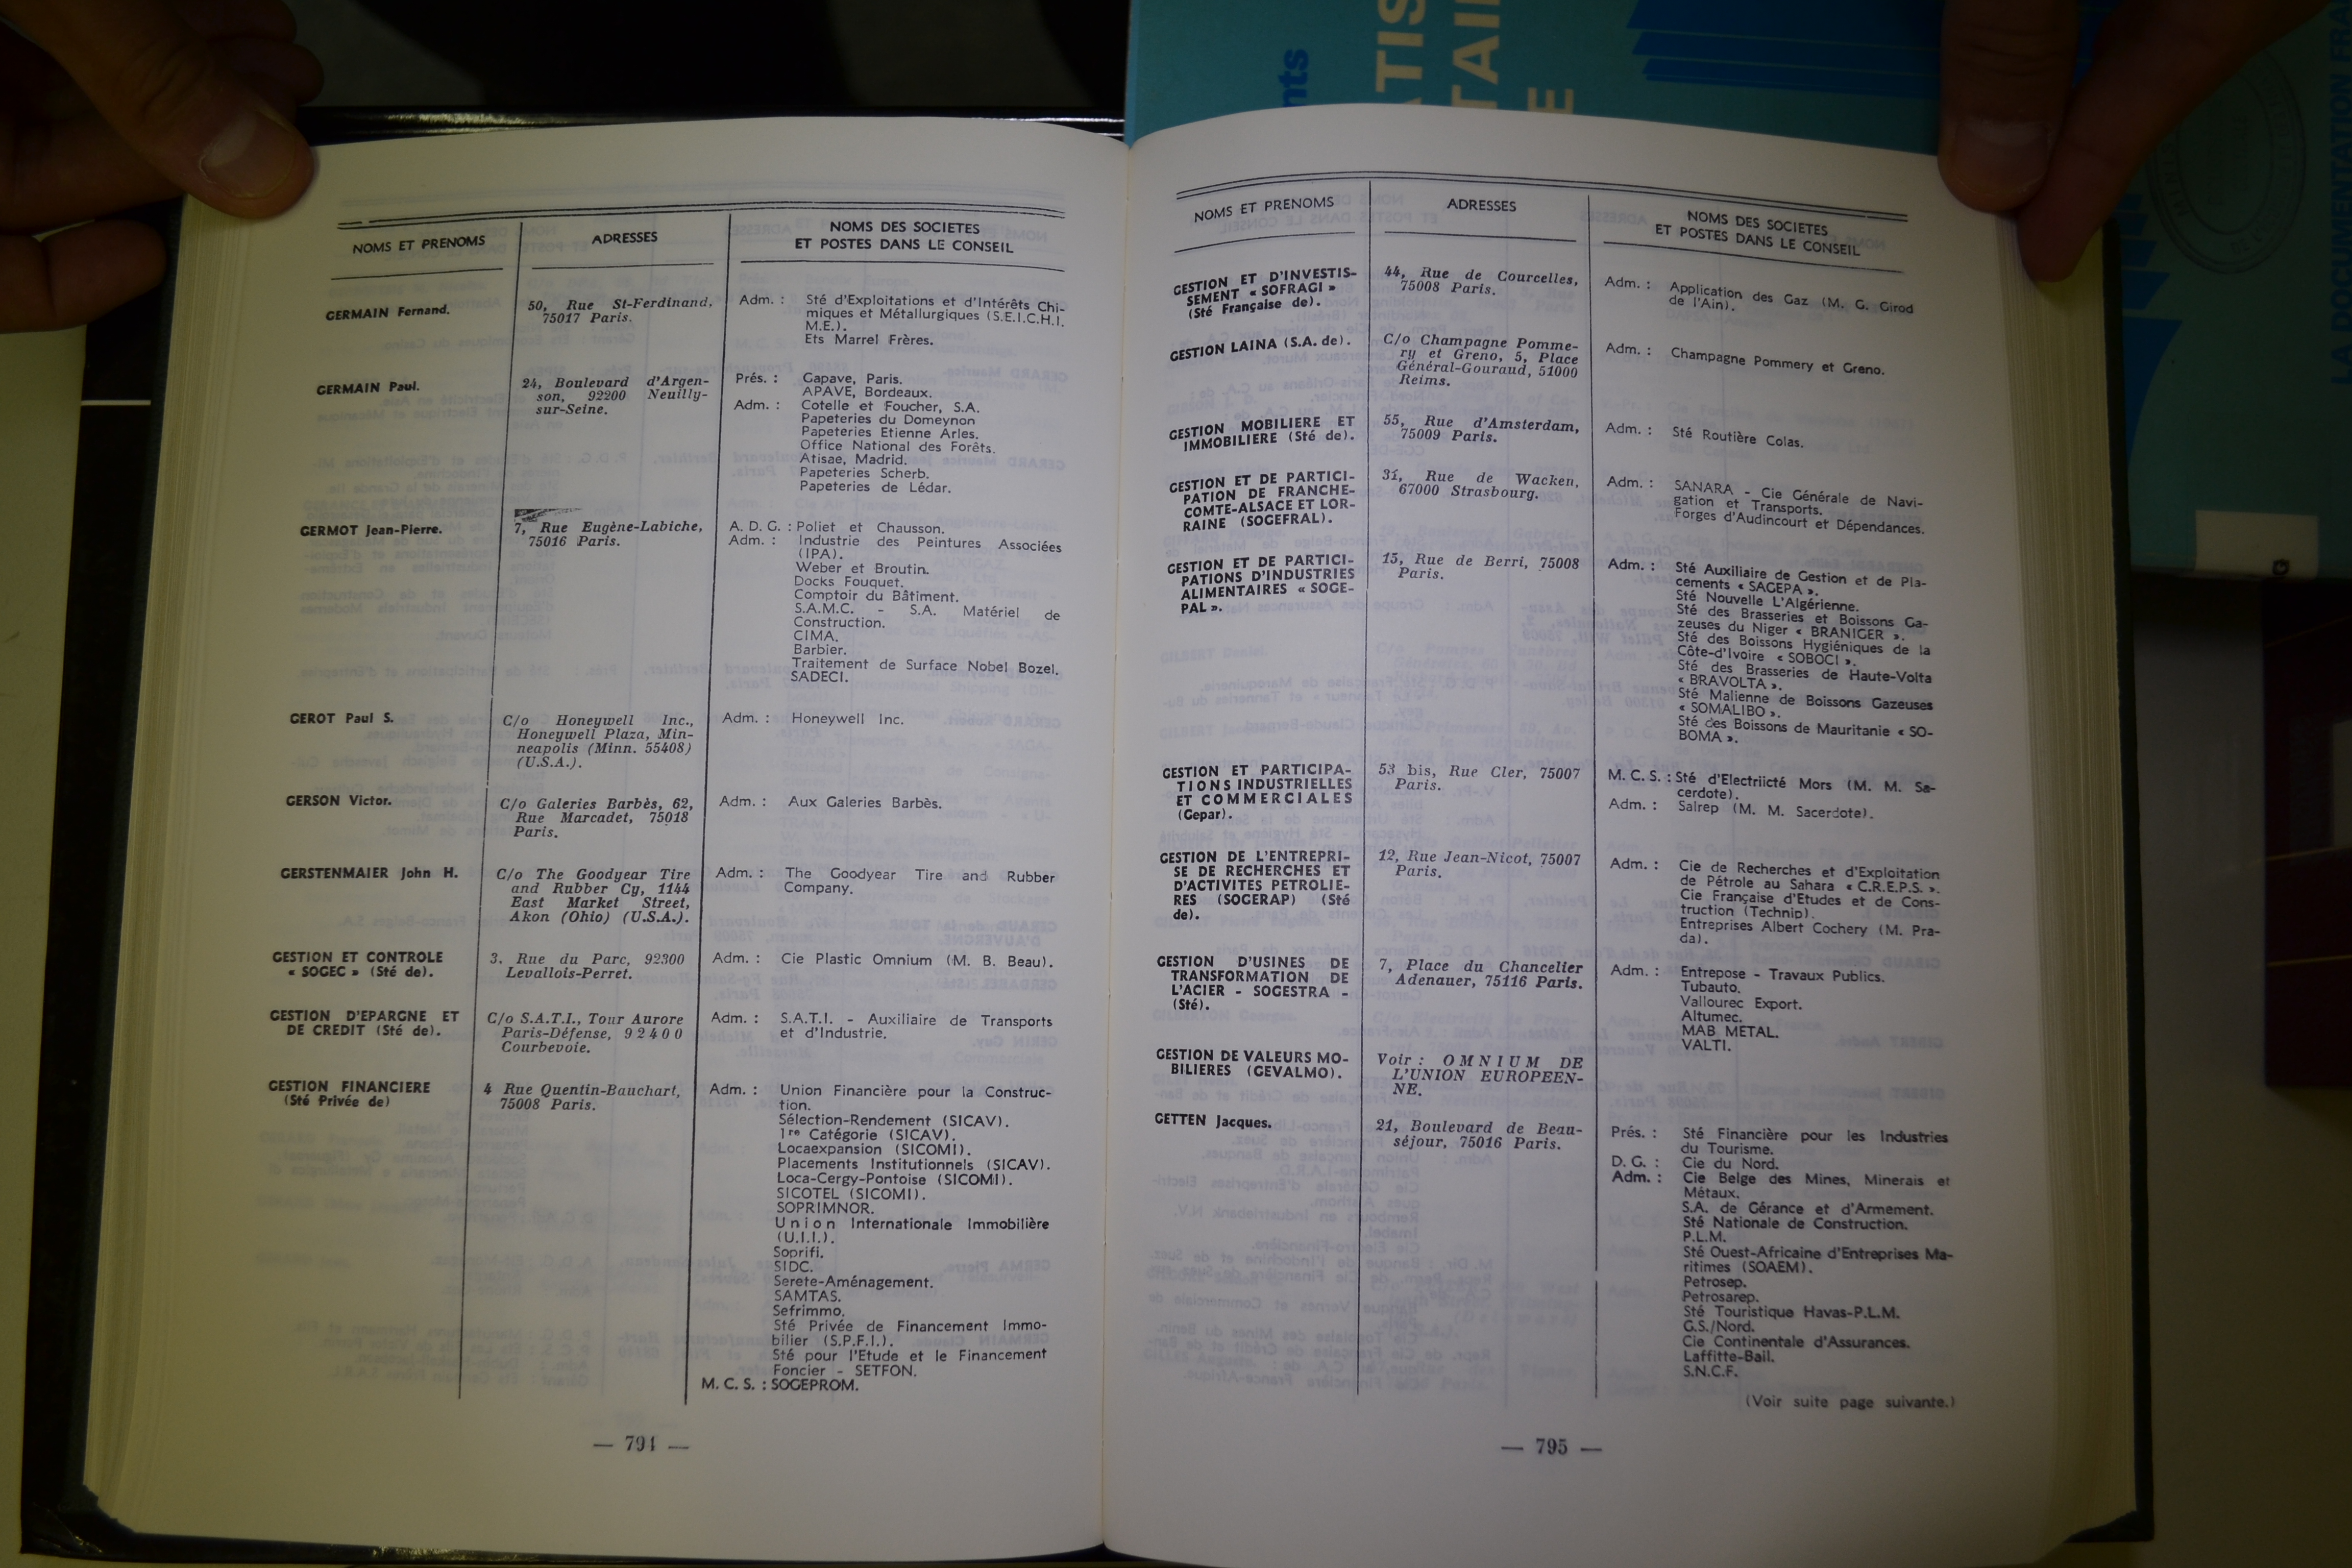 NOMS ET PRENOMS
ADRESSES
NOMS DES SOCIETES
ET POSTES DANS LE CONSEIL
GERMAIN Fernand.
50, Rue St-Ferdinand,
75017 Paris.
Adm. : Sté d'Exploitations et d'Intérêts Chi-
miques et Métallurgiques (S.E.I.C.H.I.
M.E.).
Ets Marrel Frères.
GERMAIN Paul.
24, Boulevard d'Argen-
son, 92200 Neuilly-
sur-Seine.
Prés. : Gapave, Paris.
APAVE, Bordeaux.
Adm. : Cotelle et Foucher, S.A.
Papeteries du Domeynon
Papeteries Etienne Arles.
Office National des Forêts.
Atisae, Madrid.
Papeteries Scherb.
Papeteries de Lédar.
GERMOT Jean-Pierre.
7, Rue Eugène-Labiche,
75016 Paris.
A. D. G. : Poliet et Chausson.
Adm. : Industrie des Peintures Associées
(IPA).
Weber et Broutin.
Docks Fouquet.
Comptoir du Bâtiment.
S.A.M.C. - S.A. Matériel de
Construction.
CIMA.
Barbier.
Traitement de Surface Nobel Bozel.
SADECI.
GEROT Paul S.
C/o Honeywell Inc.,
Honeywell Plaza, Min-
neapolis (Minn. 55408)
(U.S.A.).
Adm. : Honeywell Inc.
GERSON Victor.
C/o Galeries Barbès, 62,
Rue Marcadet, 75018
Paris.
Adm. : Aux Galeries Barbès.
GERSTENMAIER John H.
C/o The Goodyear Tire
and Rubber Cy, 1144
East Market Street,
Akon (Ohio) (U.S.A.).
Adm. : The Goodyear Tire and Rubber
Company.
GESTION ET CONTROLE
« SOGEC » (Sté de).
3, Rue du Parc, 92300
Levallois-Perret.
Adm. : Cie Plastic Omnium (M. B. Beau).
GESTION D'EPARGNE ET
DE CREDIT (Sté de).
C/o S.A.T.I., Tour Aurore
Paris-Défense, 92400
Courbevoie.
Adm. : S.A.T.I. - Auxiliaire de Transports
et d'Industrie.
GESTION FINANCIERE
(Sté Privée de)
4 Rue Quentin-Bauchart,
75008 Paris.
Adm. : Union Financière pour la Construc-
tion.
Sélection-Rendement (SICAV).
1re Catégorie (SICAV).
Locaexpansion (SICOMI).
Placements Institutionnels (SICAV).
Loca-Cergy-Pontoise (SICOMI).
SICOTEL (SICOMI).
SOPRIMNOR.
Union Internationale Immobilière
(U.I.I.).
Soprifi.
SIDC.
Serete-Aménagement.
SAMTAS.
Sefrimmo.
Sté Privée de Financement Immo-
bilier (S.P.F.I.).
Sté pour l'Etude et le Financement
Foncier - SETFON.
M. C. S. : SOGEPROM.
— 794 —
NOMS ET PRENOMS
ADRESSES
NOMS DES SOCIETES
ET POSTES DANS LE CONSEIL
GESTION ET D'INVESTIS-
SEMENT « SOFRAGI »
(Sté Française de).
44, Rue de Courcelles,
75008 Paris.
Adm. : Application des Gaz (M. G. Girod
de l'Ain).
GESTION LAINA (S.A. de).
C/o Champagne Pomme-
ry et Greno, 5, Place
Général-Gouraud, 51000
Reims.
Adm. : Champagne Pommery et Greno.
GESTION MOBILIERE ET
IMMOBILIERE (Sté de).
55, Rue d'Amsterdam,
75009 Paris.
Adm. : Sté Routière Colas.
GESTION ET DE PARTICI-
PATION DE FRANCHE-
COMTE-ALSACE ET LOR-
RAINE (SOGEFRAL).
31, Rue de Wacken,
67000 Strasbourg.
Adm. : SANARA - Cie Générale de Navi-
gation et Transports.
Forges d'Audincourt et Dépendances.
GESTION ET DE PARTICI-
PATIONS D'INDUSTRIES
ALIMENTAIRES « SOGE-
PAL ».
15, Rue de Berri, 75008
Paris.
Adm. : Sté Auxiliaire de Gestion et de Pla-
cements « SAGEPA ».
Sté Nouvelle L'Algérienne.
Sté des Brasseries et Boissons Ga-
zeuses du Niger « BRANIGER ».
Sté des Boissons Hygiéniques de la
Côte-d'Ivoire « SOBOCI ».
Sté des Brasseries de Haute-Volta
« BRAVOLTA ».
Sté Malienne de Boissons Gazeuses
« SOMALIBO ».
Sté des Boissons de Mauritanie « SO-
BOMA ».
GESTION ET PARTICIPA-
TIONS INDUSTRIELLES
ET COMMERCIALES
(Gepar).
53 bis, Rue Cler, 75007
Paris.
M. C. S. : Sté d'Electriicté Mors (M. M. Sa-
cerdote).
Adm. : Salrep (M. M. Sacerdote).
GESTION DE L'ENTREPRI-
SE DE RECHERCHES ET
D'ACTIVITES PETROLIE-
RES (SOGERAP) (Sté
de).
12, Rue Jean-Nicot, 75007
Paris.
Adm. : Cie de Recherches et d'Exploitation
de Pétrole au Sahara « C.R.E.P.S. ».
Cie Française d'Etudes et de Cons-
truction (Technip).
Entreprises Albert Cochery (M. Pra-
da).
GESTION D'USINES DE
TRANSFORMATION DE
L'ACIER - SOGESTRA -
(Sté).
7, Place du Chancelier
Adenauer, 75116 Paris.
Adm. : Entrepose - Travaux Publics.
Tubauto.
Vallourec Export.
Altumec.
MAB METAL.
VALTI.
GESTION DE VALEURS MO-
BILIERES (GEVALMO).
Voir : OMNIUM DE
L'UNION EUROPEEN-
NE.
GETTEN Jacques.
21, Boulevard de Beau-
séjour, 75016 Paris.
Prés. : Sté Financière pour les Industries
du Tourisme.
D. G. : Cie du Nord.
Adm. : Cie Belge des Mines, Minerais et
Métaux.
S.A. de Gérance et d'Armement.
Sté Nationale de Construction.
P.L.M.
Sté Ouest-Africaine d'Entreprises Ma-
ritimes (SOAEM).
Petrosep.
Petrosarep.
Sté Touristique Havas-P.L.M.
G.S./Nord.
Cie Continentale d'Assurances.
Laffitte-Bail.
S.N.C.F.
(Voir suite page suivante.)
— 795 —
LA DOCUMENTATION FRA